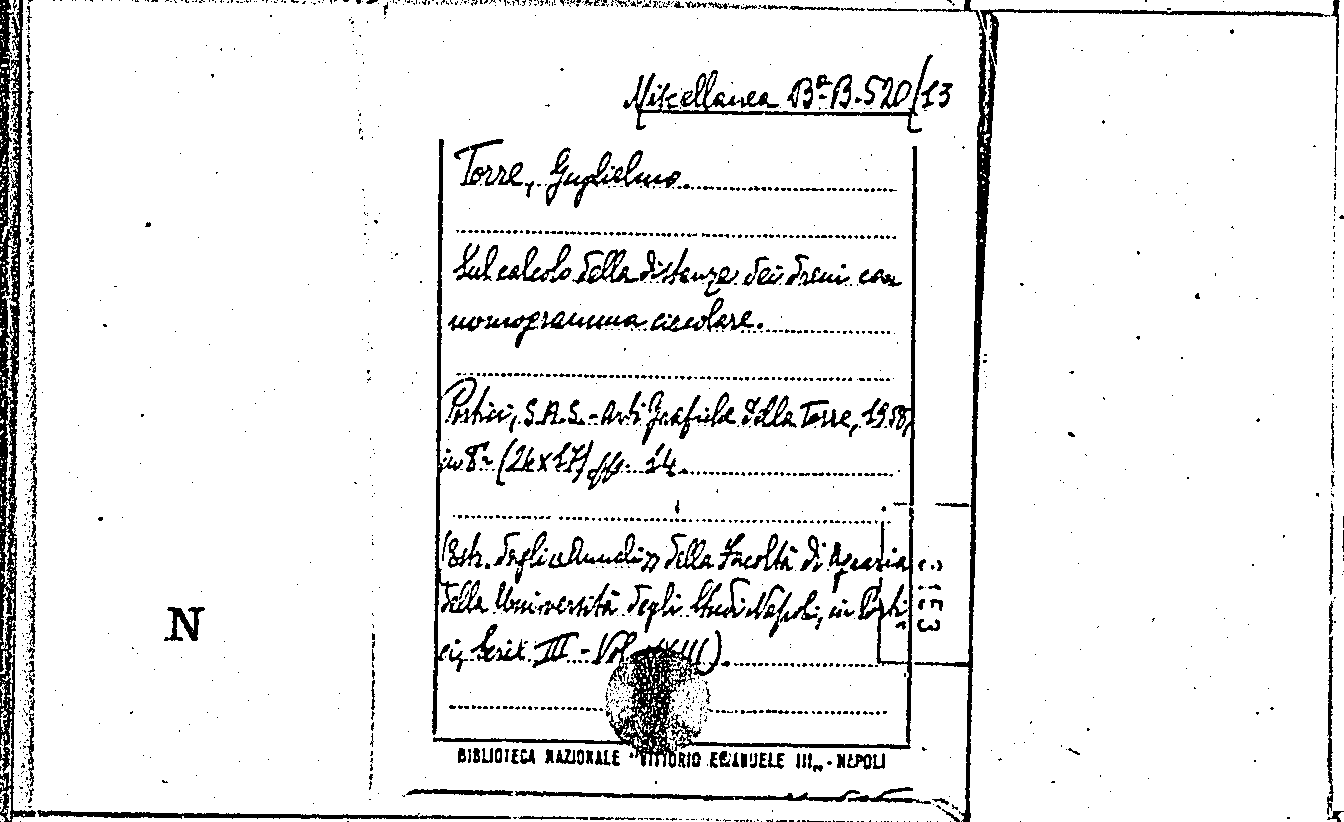 Miscellanea Bª B. 520/13
Torre, Guglielmo.
Sul calcolo della distanza dei dreni con
nomogramma circolare.
Portici, S.A.S. - Arti Grafiche Della Torre, 1958,
in 8° (24x17) pp. 14.
(Estr. dagli Annali della Facoltà di Agraria
della Università degli Studi Napoli, in Porti
ci, Serie III - Vol.
N
BIBLIOTECA NAZIONALE "VITTORIO EMANUELE III„ - NAPOLI